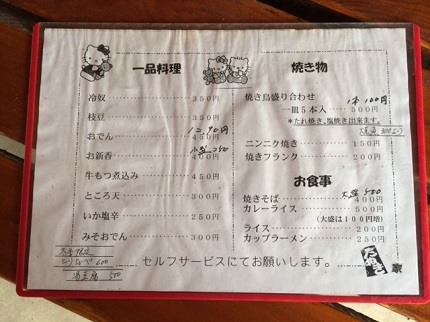 一品料理
冷奴 350円
枝豆 350円
おでん 450円
1コ 90円
小皿 250
お新香 400円
牛もつ煮込み 450円
ところ天 300円
いか塩辛 250円
みそおでん 300円
600
湯豆腐 500
焼き物
焼き鳥盛り合わせ
1本 100円
一皿5本入 500円
*たれ焼き、塩焼き出来ます。
ニンニク焼き 150円
焼きフランク 200円
お食事
大盛 500
焼きそば 400円
カレーライス 500円
(大盛は100円増)
ライス 200円
カップラーメン 250円
セルフサービスにてお願いします。
家